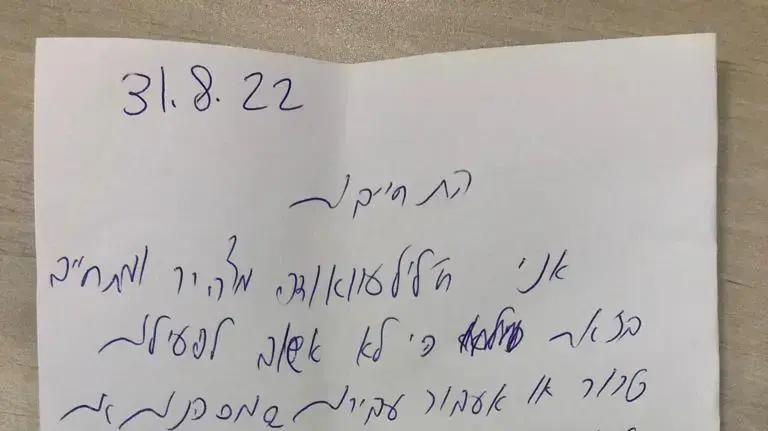 31.8.22
התחייבות
אני ח'ליל עוואודה מצהיר ומתחייב
בזאת כי לא אשוב לפעילות
טרור או אעבור עבירות שמסכנות את